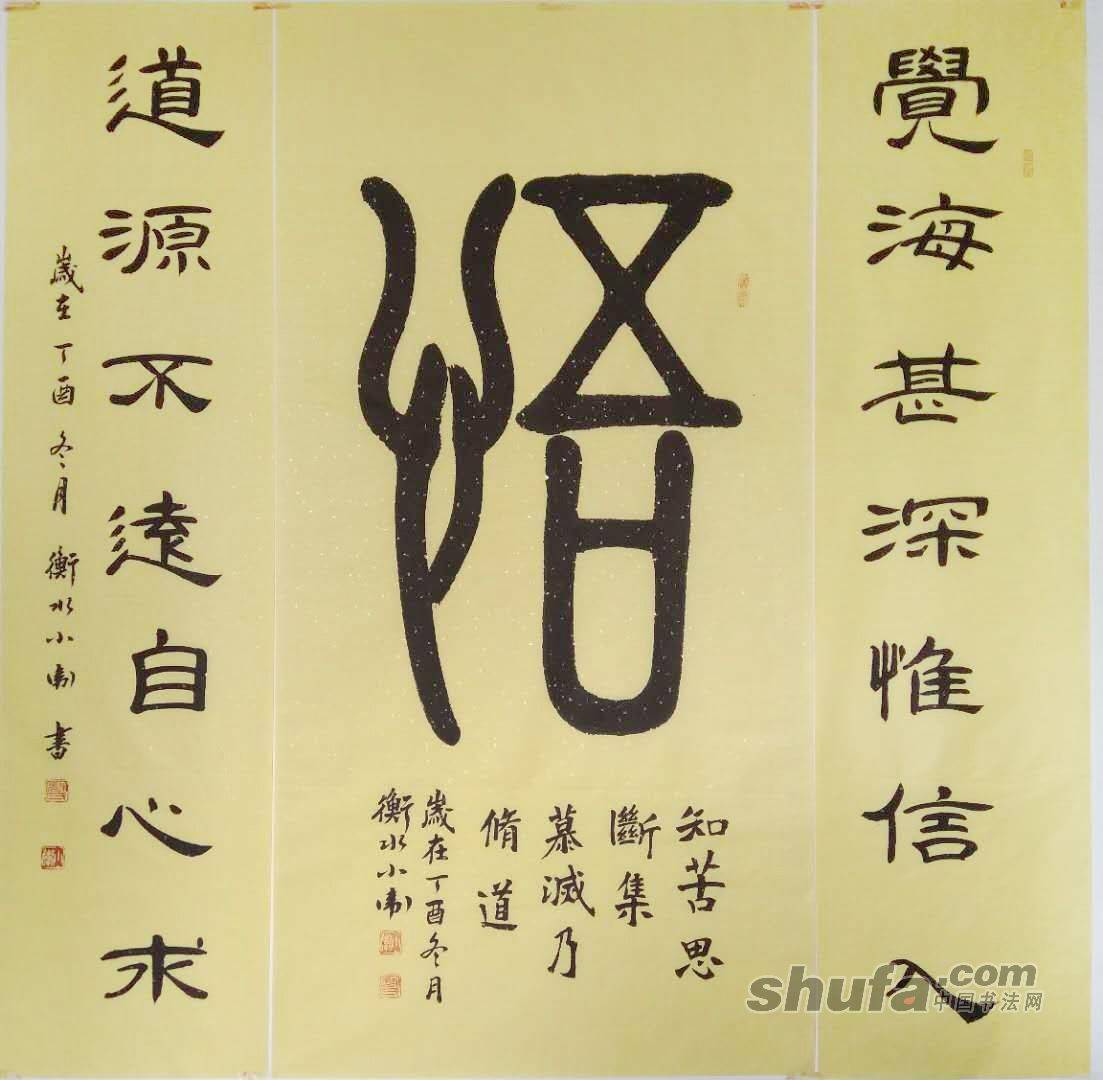 覺海甚深惟信入
悟
知苦思
斷集
慕滅乃
脩道
歲在丁酉冬月
衡水小衛
道源不遠自心求
歲在丁酉冬月 衡水小衛書
shufa.com
中国书法网